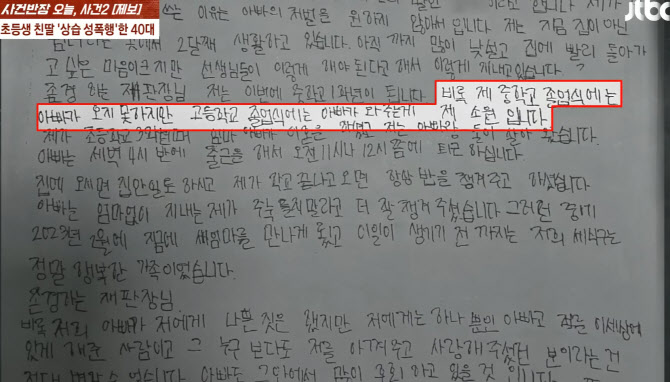 사건반장 오늘, 사건2 [제보]
초등생 친딸 '상습 성폭행'한 40대
jtbc
쓰는 이유는 아빠의 처벌을 원하지 않아서 입니다. 저는 지금 집이 아닌
곳에서 2달째 생활하고 있습니다. 아직 까지 많이 낯설고 집에 빨리 돌아가
고 싶은 마음이 크지만 선생님들이 이렇게 해야 된다고 해서 이렇게 지내고있습니다.
존경하는 재판장님, 저는 이번에 중학교 1학년이 됩니다. 비록 제 중학교 졸업식에는
아빠가 오지 못하지만 고등학교 졸업식에는 아빠가 와주는게 제 소원 입니다.
제가 초등학교 3학년때 엄마 아빠가 이혼을 하였고 저는 아빠랑 둘이 살아 왔습니다.
아빠는 새벽 4시 반에 출근을 해서 오전 11시나 12시 쯤에 퇴근 하십니다.
집에 오시면 집안일도 하시고 제가 학교 끝나고 오면 항상 밥을 챙겨주고 하셨습니다
아빠는 엄마없이 지내는 제가 주눅 들지말라고 더 잘 챙겨 주셨습니다 그러던 중에
2023년 2월에 지금에 새엄마를 만나게 됐고 이일이 생기기 전 까지는 저희 세식구는
정말 행복한 가족이었습니다.
존경하는 재판장님.
비록 저희 아빠가 저에게 나쁜 짓은 했지만 저에게는 하나 뿐인 아빠고 저를 이세상에
있게 해준 사람이고 그 누구 보다도 저를 아껴주고 사랑해 주셨던 분이라는건
절대 변할수 없습니다. 아빠도 그 안에서 많이 후회 하고 있을 것 입니다